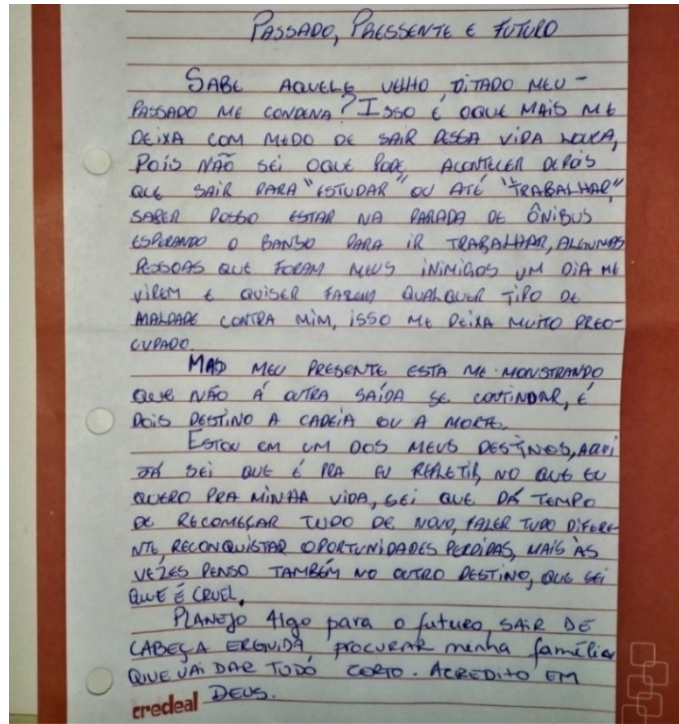 PASSADO, PRESSENTE E FUTURO
SABE AQUELE VELHO DITADO MEU -
PASSADO ME CONDENA? ISSO É OQUE MAIS ME
DEIXA COM MEDO DE SAIR DESSA VIDA LOUCA,
POIS NÃO SEI OQUE PODE ACONTECER DEPOIS
QUE SAIR PARA "ESTUDAR" OU ATÉ "TRABALHAR",
SABER POSSO ESTAR NA PARADA DE ÔNIBUS
ESPERANDO O PARA IR TRABALHAR, ALGUMAS
PESSOAS QUE FORAM MEUS INIMIGOS UM DIA ME
VIREM E QUISER FAZEM QUALQUER TIPO DE
MALDADE CONTRA MIM, ISSO ME DEIXA MUITO PREO-
CUPADO.
MAS MEU PRESENTE ESTA ME MONSTRANDO
QUE NÃO Á OUTRA SAÍDA SE CONTINUAR, É
DOIS DESTINO A CADEIA OU A MORTE.
ESTOU EM UM DOS MEUS DESTINOS, AQUI
JÁ SEI QUE É PRA EU REFLETIR, NO QUE EU
QUERO PRA MINHA VIDA, SEI QUE DÁ TEMPO
DE RECOMEÇAR TUDO DE NOVO, FAZER TUDO DIFERE-
NTE, RECONQUISTAR OPORTUNIDADES PERDIDAS, MAIS ÀS
VEZES PENSO TAMBÉM NO OUTRO DESTINO, QUE SEI
QUE É CRUEL.
PLANEJO Algo para o futuro, SAIR DE
CABEÇA ERGUIDA, PROCURAR minha família
QUE VAI DAR TUDO CERTO. ACREDITO EM
credeal DEUS.